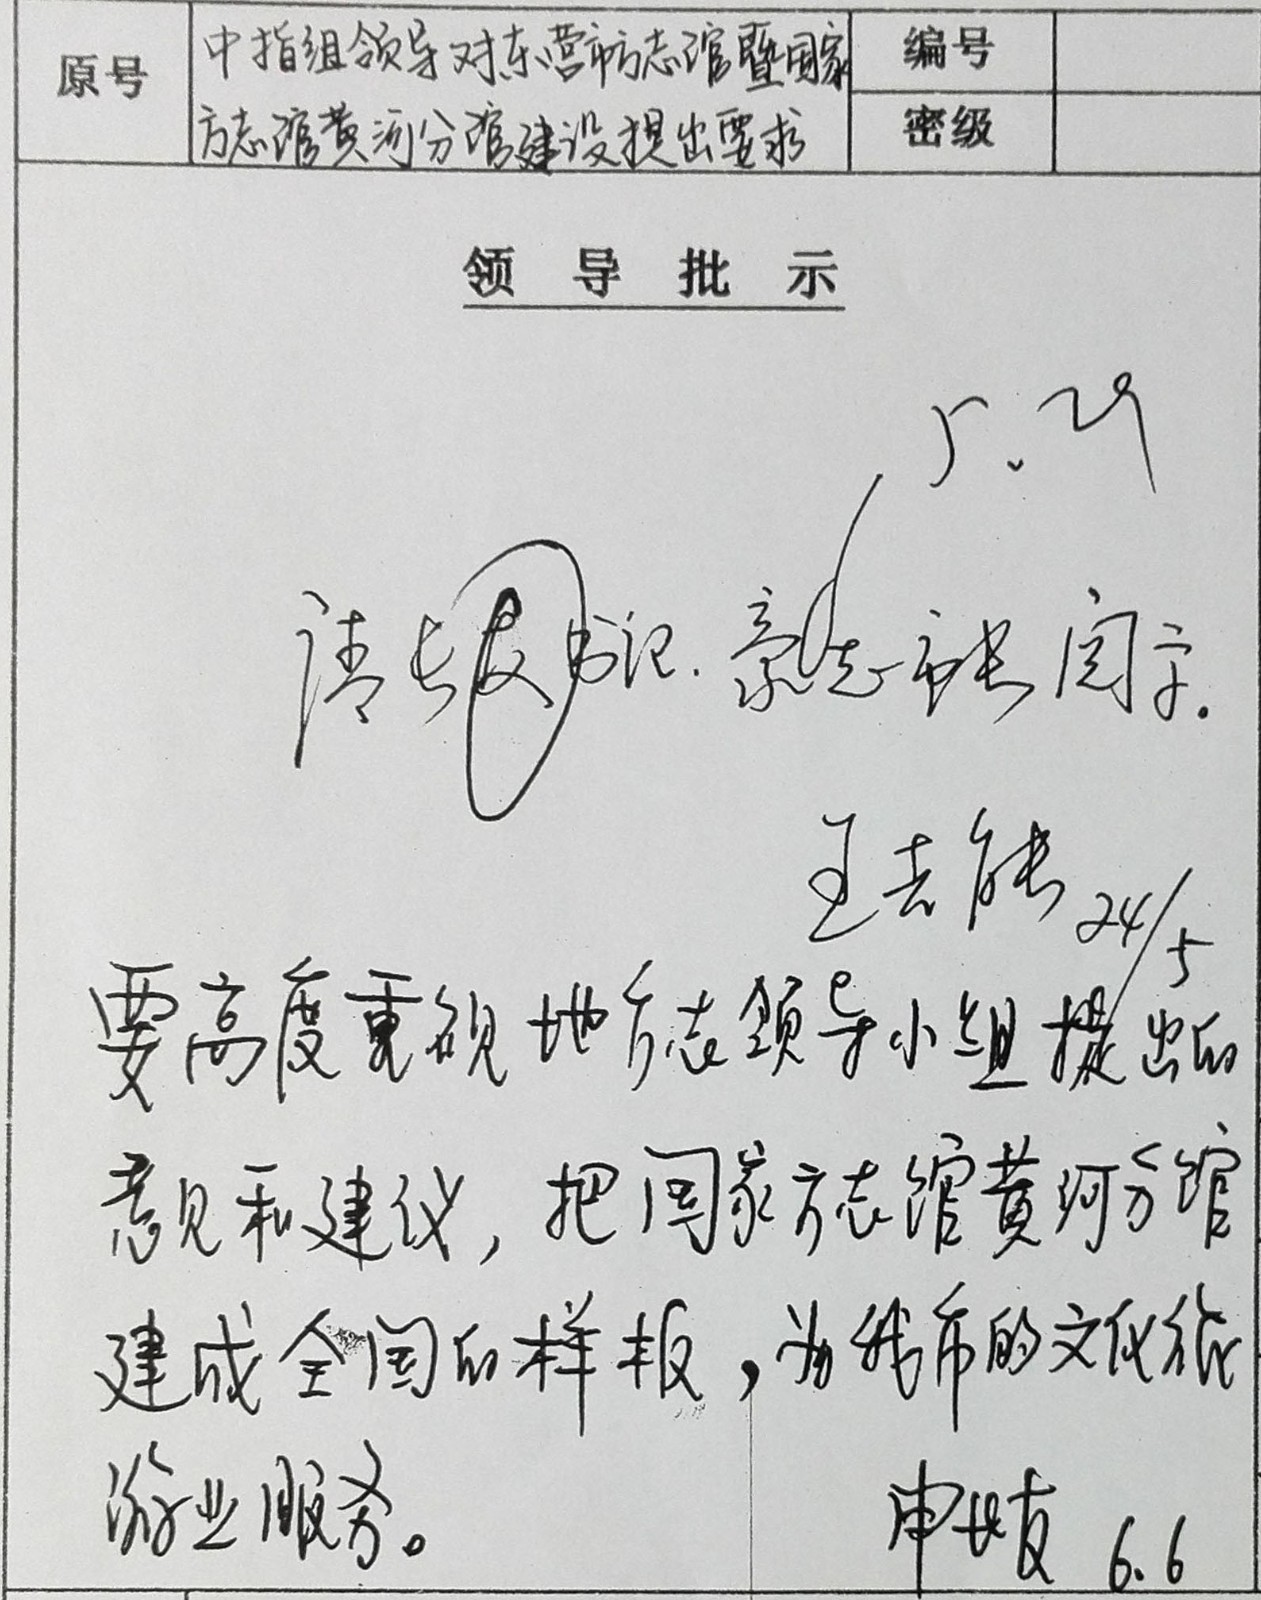 原号
中指组领导对东营市方志馆暨国家
方志馆黄河分馆建设提出要求
编号
密级
领导批示
5.29
请长友书记.豪志市长阅示.
王吉能 24/5
要高度重视地方志领导小组提出的
意见和建议,把国家方志馆黄河分馆
建成全国的样板,为我市的文化旅
游业服务。
申长友 6.6